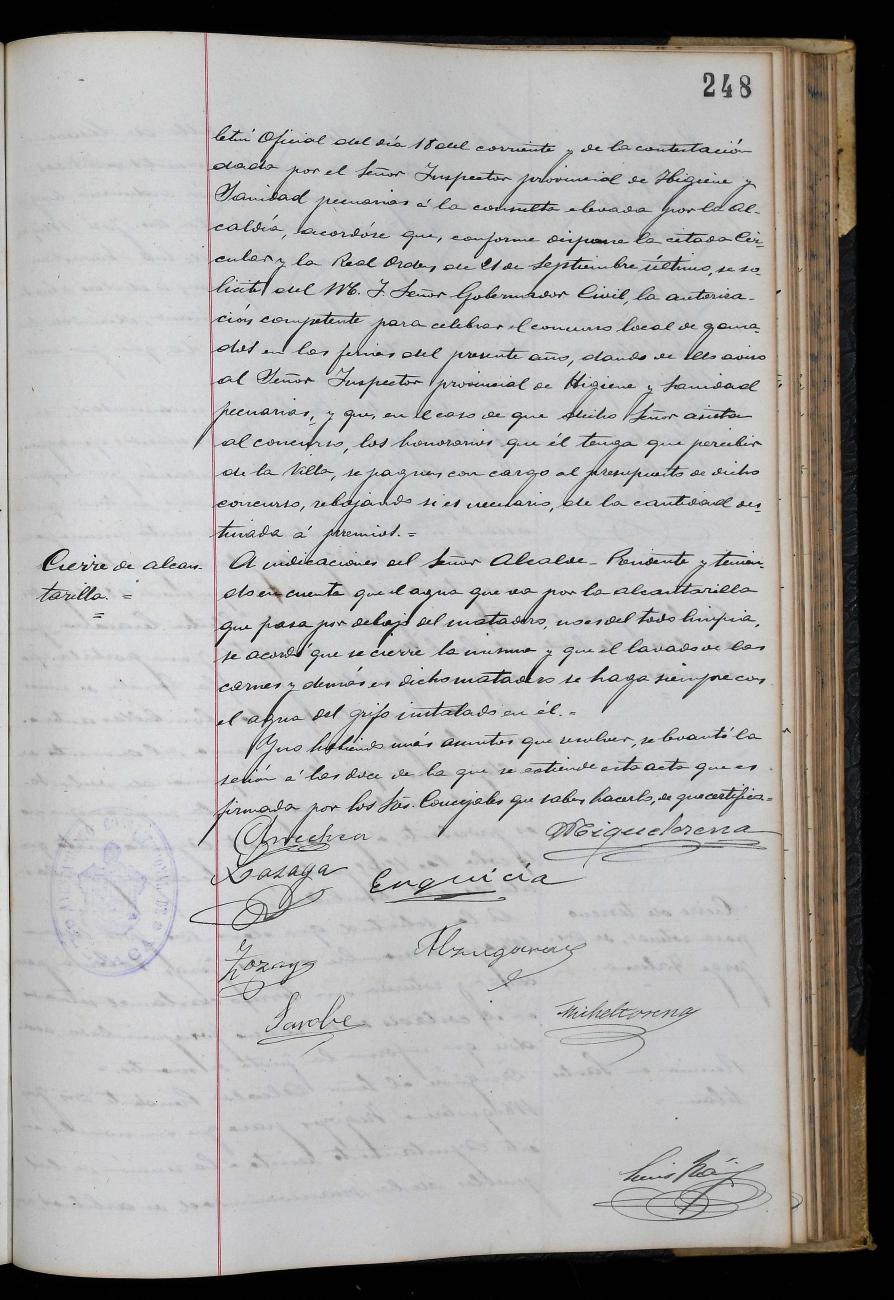 248
letín Oficial del día 18 del corriente y de la contestación
dada por el Señor Inspector provincial de Higiene y
Sanidad pecuarias á la consulta elevada por la Al-
caldía, acordóse que, conforme dispone la citada Cir-
cular y la Real Orden de 21 de Septiembre último, se so-
licite del M. I. Señor Gobernador Civil, la autoriza-
ción competente para celebrar el concurso local de gana-
dos en las ferias del presente año, dando de ello aviso
al Señor Inspector provincial de Higiene y Sanidad
pecuarias, y que, en el caso de que dicho Señor asista
al concurso, los honorarios que él tenga que percibir
de la Villa, se paguen con cargo al presupuesto de dicho
concurso, rebajando si es necesario, de la cantidad des-
tinada á premios. =
Cierre de alcan-
tarilla. =
=
A indicaciones del Señor Alcalde-Presidente y tenien-
do en cuenta que el agua que va por la alcantarilla
que pasa por debajo del matadero, no es del todo limpia,
se acordó que se cierre la misma y que el lavado de las
carnes y demás en dicho matadero se haga siempre con
el agua del grifo instalado en él. =
Y no habiendo más asuntos que resolver, se levantó la
sesión á las doce de la que se estiende esta acta que es
firmada por los Sres. Concejales que saben hacerlo, de que certifica=
Miquelorena
Zozaya
Enquicia
Zozaya
Alzugaray
Sarobe
Micheltorena
Luis